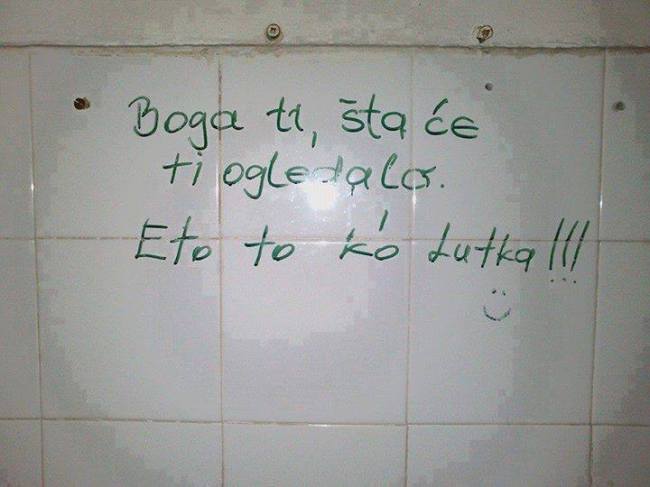 Boga ti, šta će
ti ogledalo.
Eto to ko' lutka!!!